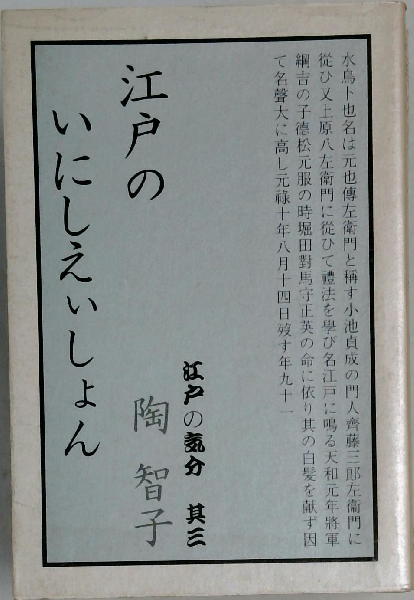 水鳥卜也名は元也傳左衛門と稱す小池貞成の門人齊藤三郎左衞門に
從ひ又上原八左衛門に從ひて禮法を學び名江戸に鳴る天和元年將軍
綱吉の子德松元服の時堀田對馬守正英の命に依り其の白髮を献ず因
て名聲大に高し元祿十年八月十四日歿す年九十一
江戸の
いにしえいしょん
江戸の気分 其三
陶智子